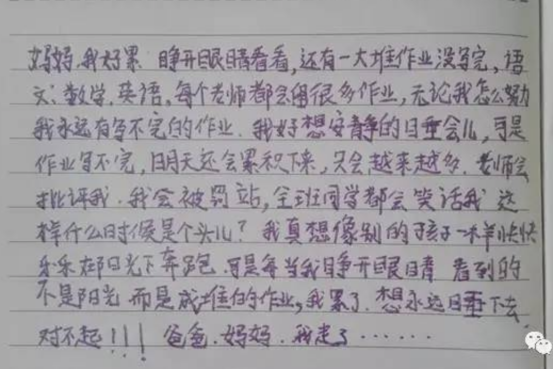 妈妈,我好累 睁开眼睛看看,还有一大堆作业没写完,语
文,数学,英语,每个老师都会留很多作业,无论我怎么努力
我永远有写不完的作业.我好想安静的睡会儿,可是
作业写不完,明天还会累积下来,只会越来越多.老师会
批评我.我会被罚站,全班同学都会笑话我 这
样什么时候是个头儿?我真想像别的孩子一样快快
乐乐 在阳光下奔跑.可是每当我睁开眼睛 看到的
不是阳光 而是成堆的作业,我累了.想永远睡下去.
对不起!!!爸爸.妈妈.我走了······